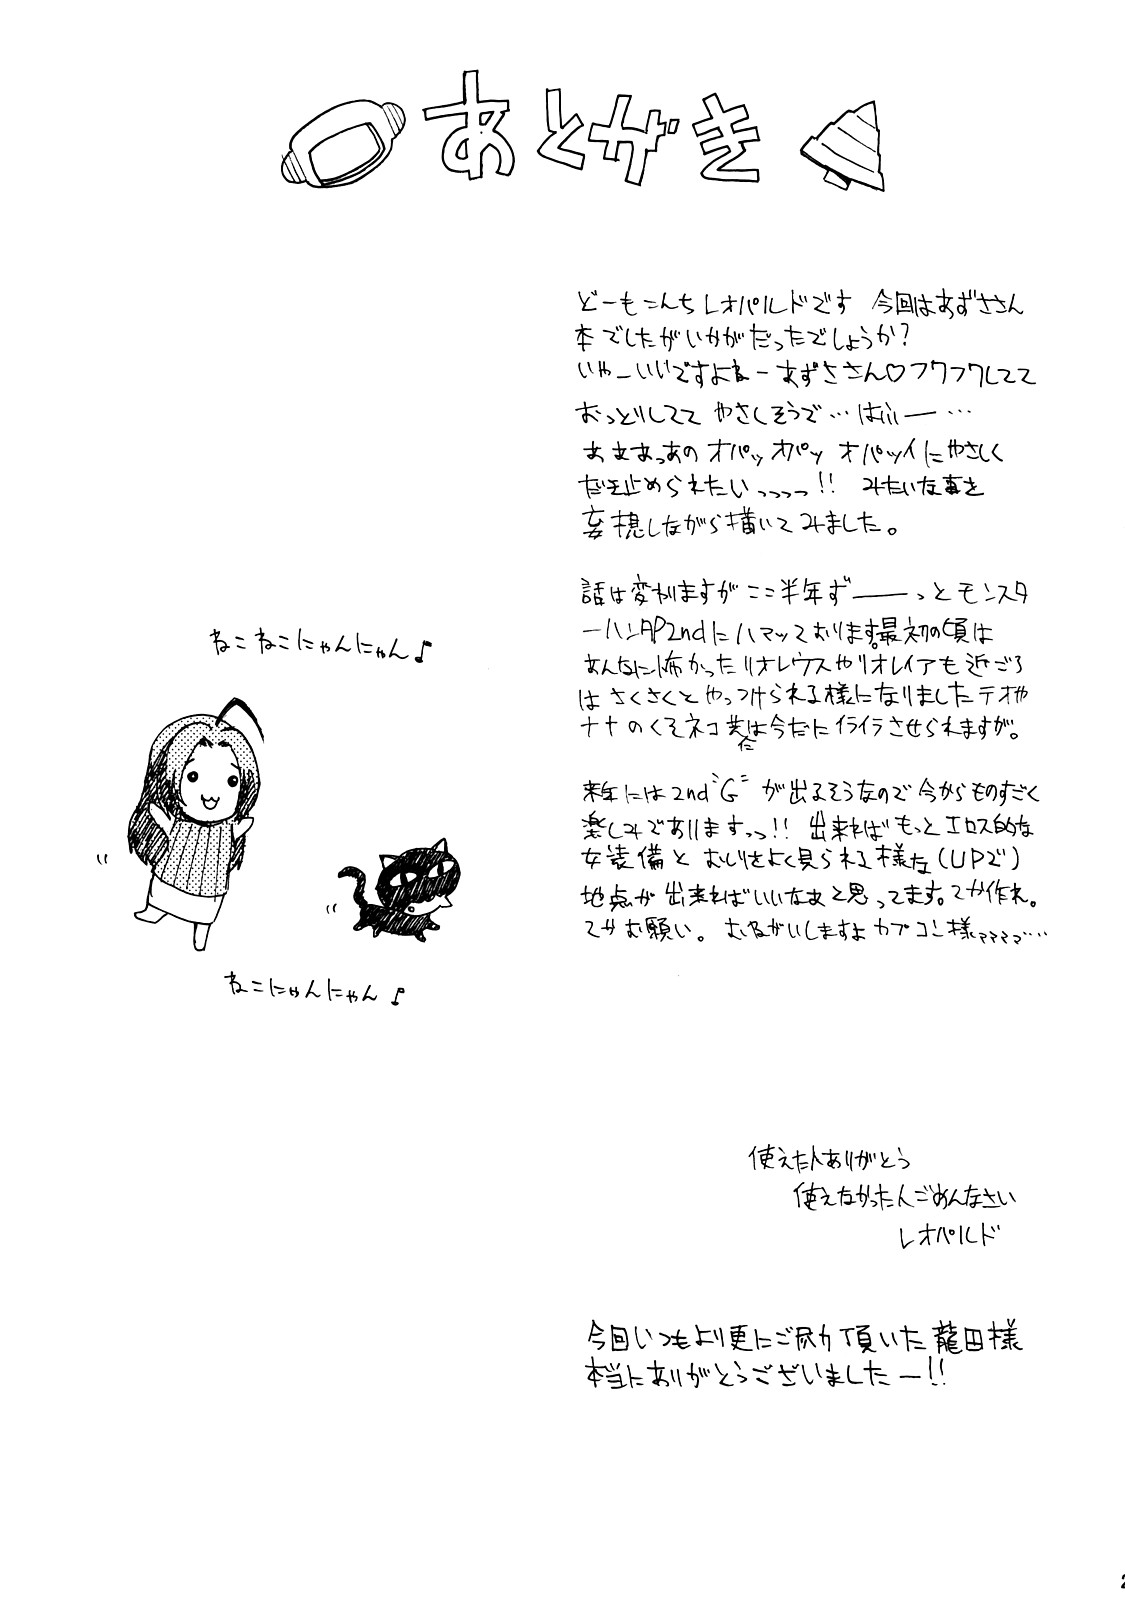 あとがき
どーもこんちレオパルドです 今回はあずささん
本でしたがいかがだったでしょうか?
いやーいいですよねーあずささん♡フワフワしてて
おっとりしてて やさしそうで…はふぅー…
あぁまっあの オパッ オパッ オパッイにやさしく
だき止められたいっっっっ!! みたいな事を
妄想しながら描いてみました。
話は変わりますがここ半年ず――っとモンスタ
ーハンタP2ndにハマッております。最初の頃は
あんなに怖かったリオレウスやリオレイアも近ごろ
はさくさくとやっつけられる様になりましたテオや
ナナのくそネコ共には今だにイライラさせられますが。
来年には2nd"G"が出るそうなので今からものすごく
楽しみでありますっっ!! 出来ればもっとエロス的な
女装備と おしりをよく見られる様な(UPで)
地点が出来ればいいなぁと思ってます。てか作れ。
てかお願い。 おねがいしますよカプコン様ァァァァ….
ねこねこにゃんにゃん♪
ねこにゃんにゃん♪
使えた人ありがとう
使えなかった人ごめんなさい
レオパルド
今回いつもより更にご尽力頂いた龍田様
本当にありがとうございましたー!!